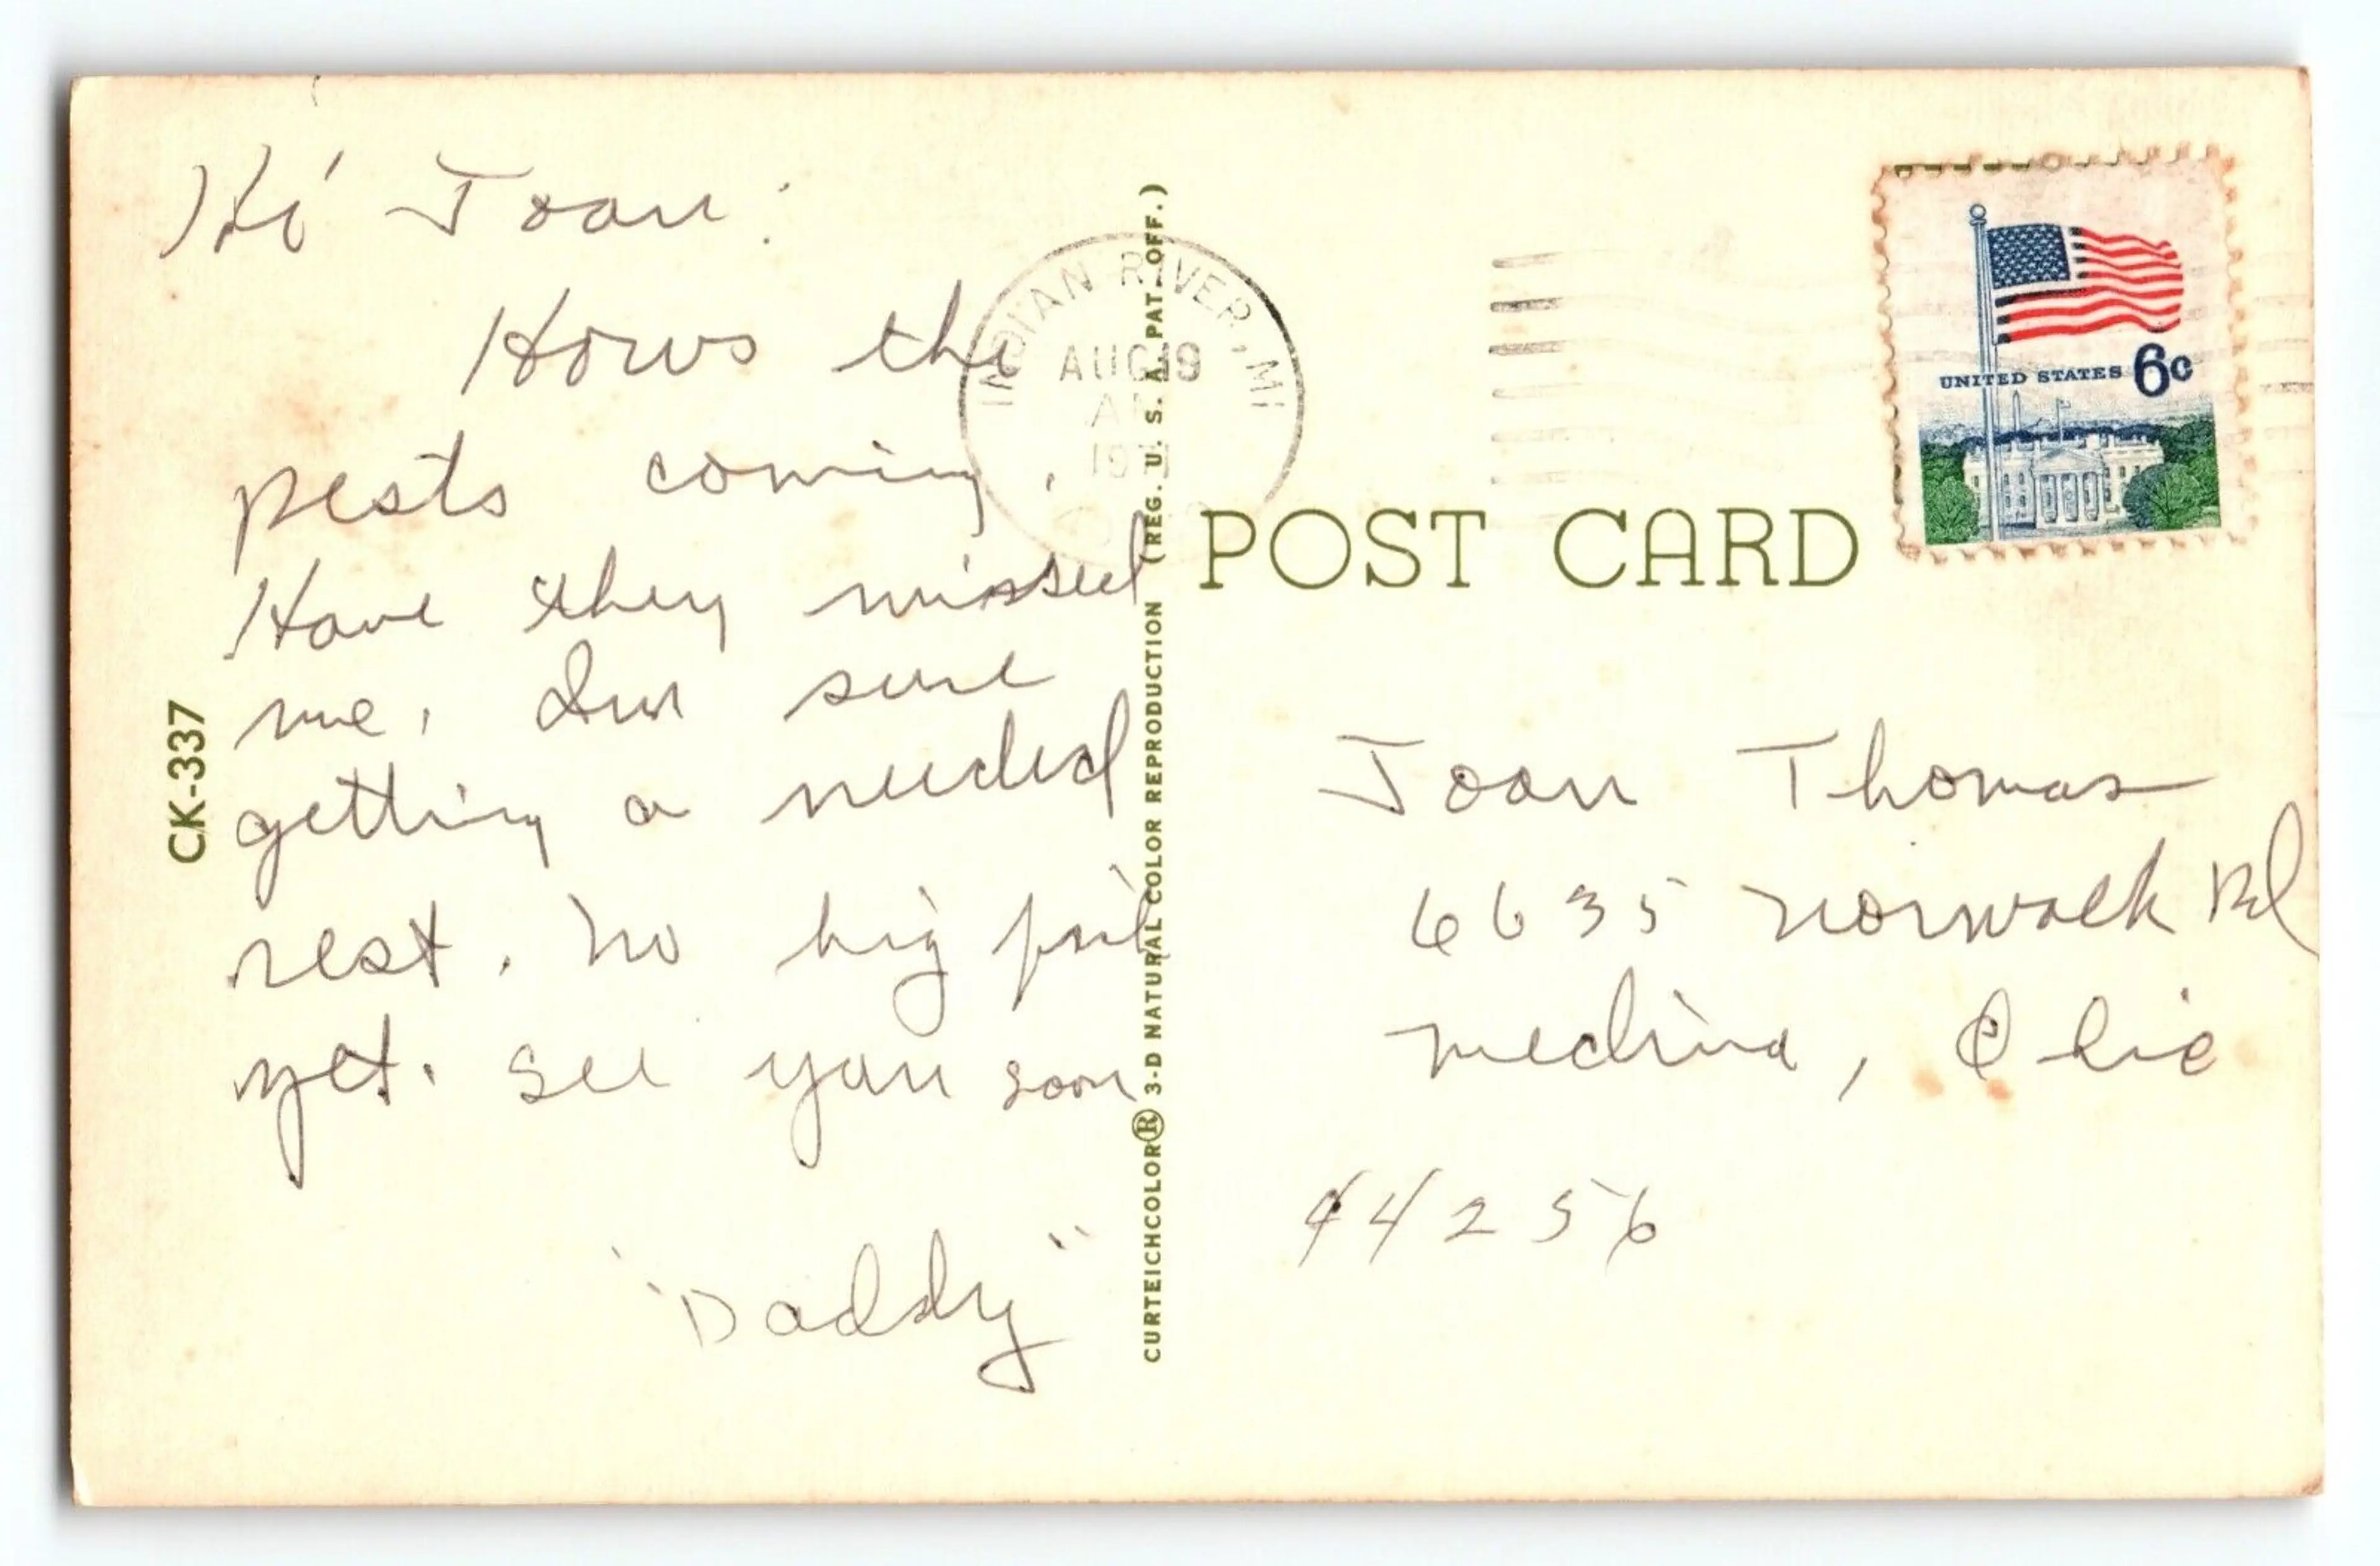 Hi Joan:
Hows the
pests coming.
Have they missed
me. Im sure
getting a needed
rest. No big fish
yet. See you soon
"Daddy"
CK-337
CURTEICHCOLOR® 3-D NATURAL COLOR REPRODUCTION (REG. U. S. A. PAT. OFF.)
INDIAN RIVER, MI
AUG 19
19
UNITED STATES 6c
POST CARD
Joan Thomas
6635 Norwalk Rd
Medina, Ohio
44256